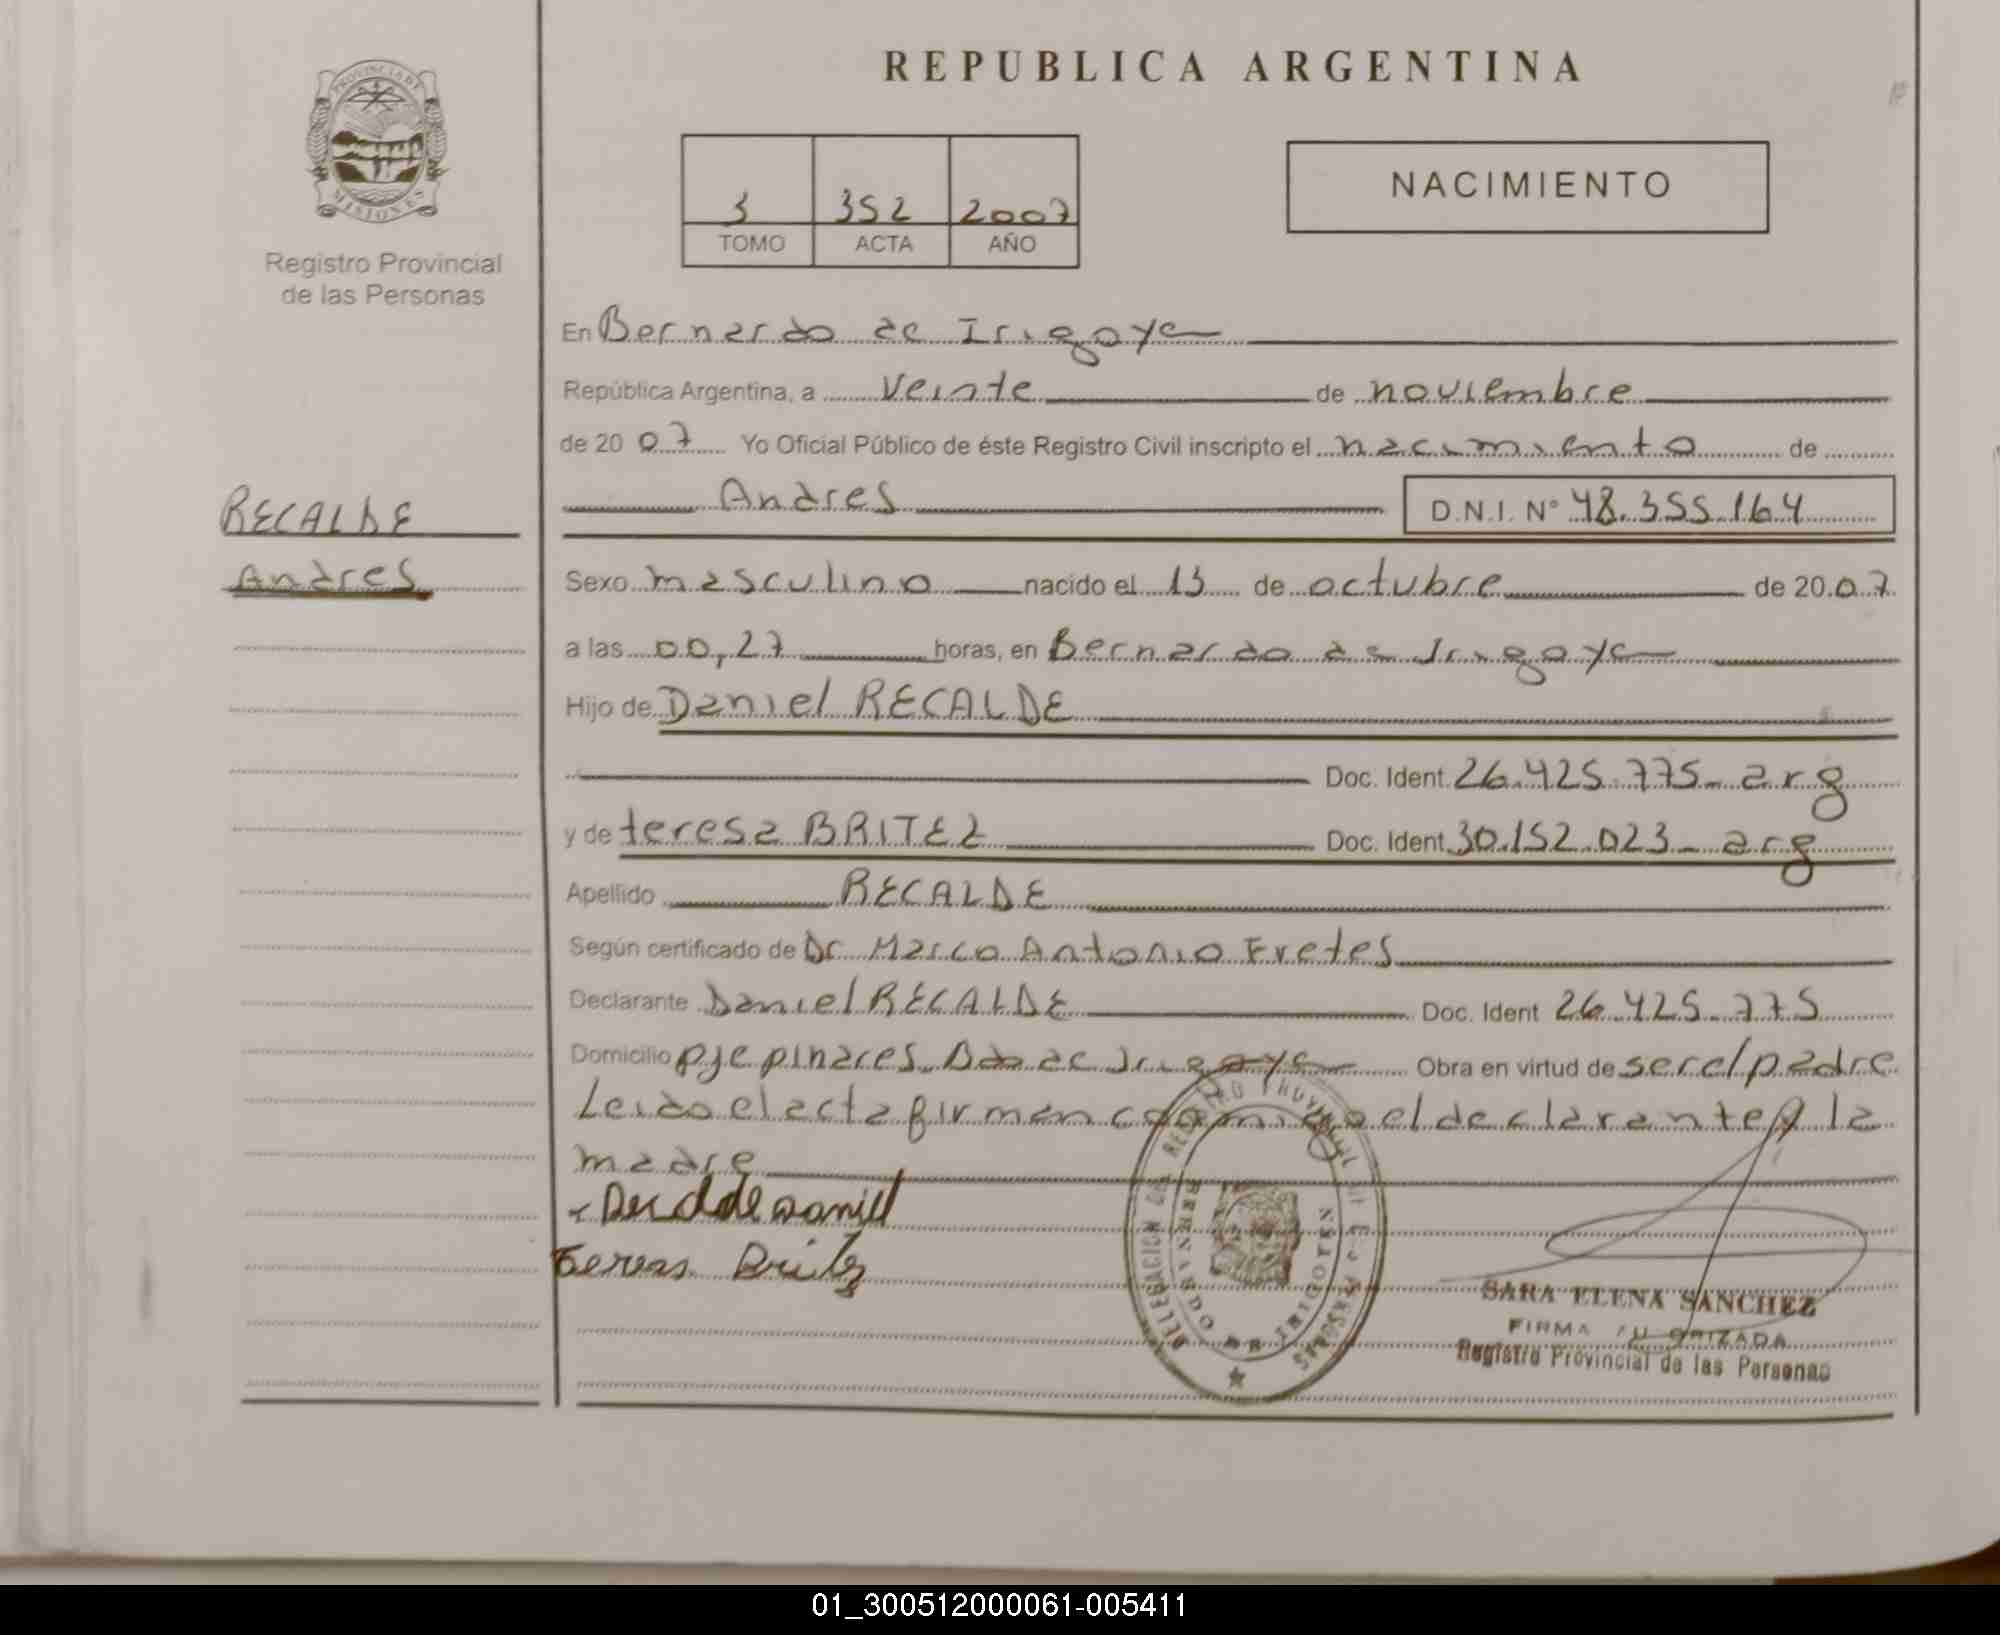 REPUBLICA ARGENTINA
PROVINCIA DE
MISIONES
Registro Provincial
de las Personas
3 352 2007
TOMO ACTA AÑO
NACIMIENTO
En Bernardo de Irigoye
República Argentina, a Veinte de noviembre
de 20 07 Yo Oficial Público de éste Registro Civil inscripto el nacimiento de
Andres D.N.I. N° 48.355.164
RECALDE
Andres
Sexo masculino nacido el 13 de octubre de 20 07
a las 00,27 horas, en Bernardo de Irigoye
Hijo de Daniel RECALDE
Doc. Ident. 26.425.775- arg
y de teresa BRITEZ Doc. Ident. 30.152.023- arg
Apellido RECALDE
Según certificado de Dr. Marco Antonio Fretes
Declarante Daniel RECALDE Doc. Ident 26.425.775
Domicilio pje pinares. Bdo de Irigoye Obra en virtud de ser el padre
Leido el acta firman conmigo el declarante y la
madre
Daniel
Teresa Britez
DELEGACION DEL REGISTRO PROVINCIAL DE LAS PERSONAS
BERNARDO DE IRIGOYEN
SARA ELENA SANCHEZ
FIRMA AUTORIZADA
Registro Provincial de las Personas
01_300512000061-005411